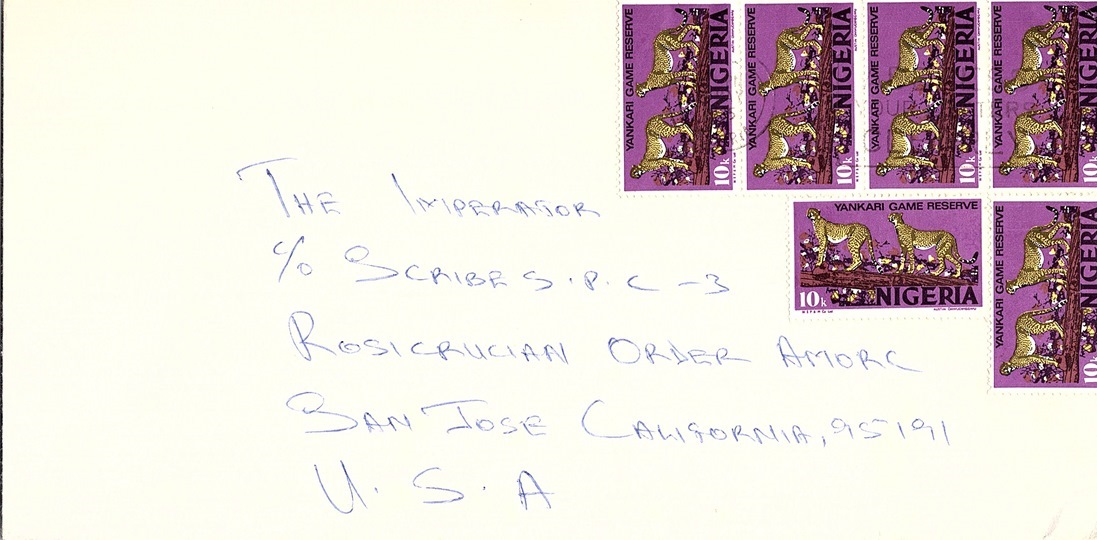 YANKARI GAME RESERVE
NIGERIA
10k
YANKARI GAME RESERVE
NIGERIA
10k
YANKARI GAME RESERVE
NIGERIA
10k
YANKARI GAME RESERVE
NIGERIA
10k
YANKARI GAME RESERVE
10k NIGERIA
YANKARI GAME RESERVE
NIGERIA
10k
THE IMPERATOR
c/o SCRIBE S.P.C-3
ROSICRUCIAN ORDER AMORC
SAN JOSE CALIFORNIA, 95191
U.S.A